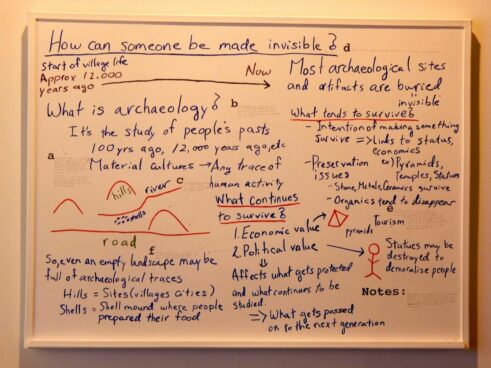 How can someone be made invisible?
d
Start of village life
Approx 12,000
years ago
Now
What is archaeology?
b
It's the study of people's pasts
100 yrs ago, 12,000 years ago, etc
Material cultures → Any trace of
human activity
a
hills
river
c
shells
road
f
So, even an empty landscape may be
full of archaeological traces
Hills = Sites (villages cities)
Shells = Shell mound where people
prepared their food
Most archaeological sites
and artifacts are buried
invisible
What tends to survive?
- Intention of making something
survive => links to status,
economics
- Preservation ex) Pyramids,
issues Temples, Statues
- Stone, Metals, Ceramics survive
- Organics tend to disappear
e
What continues
to survive?
1. Economic value
2. Political value
pyramids
Tourism
Statues may be
destroyed to
demoralize people
Affects what gets protected
and what continues to be
studied.
=> What gets passed
on to the next generation
Notes: